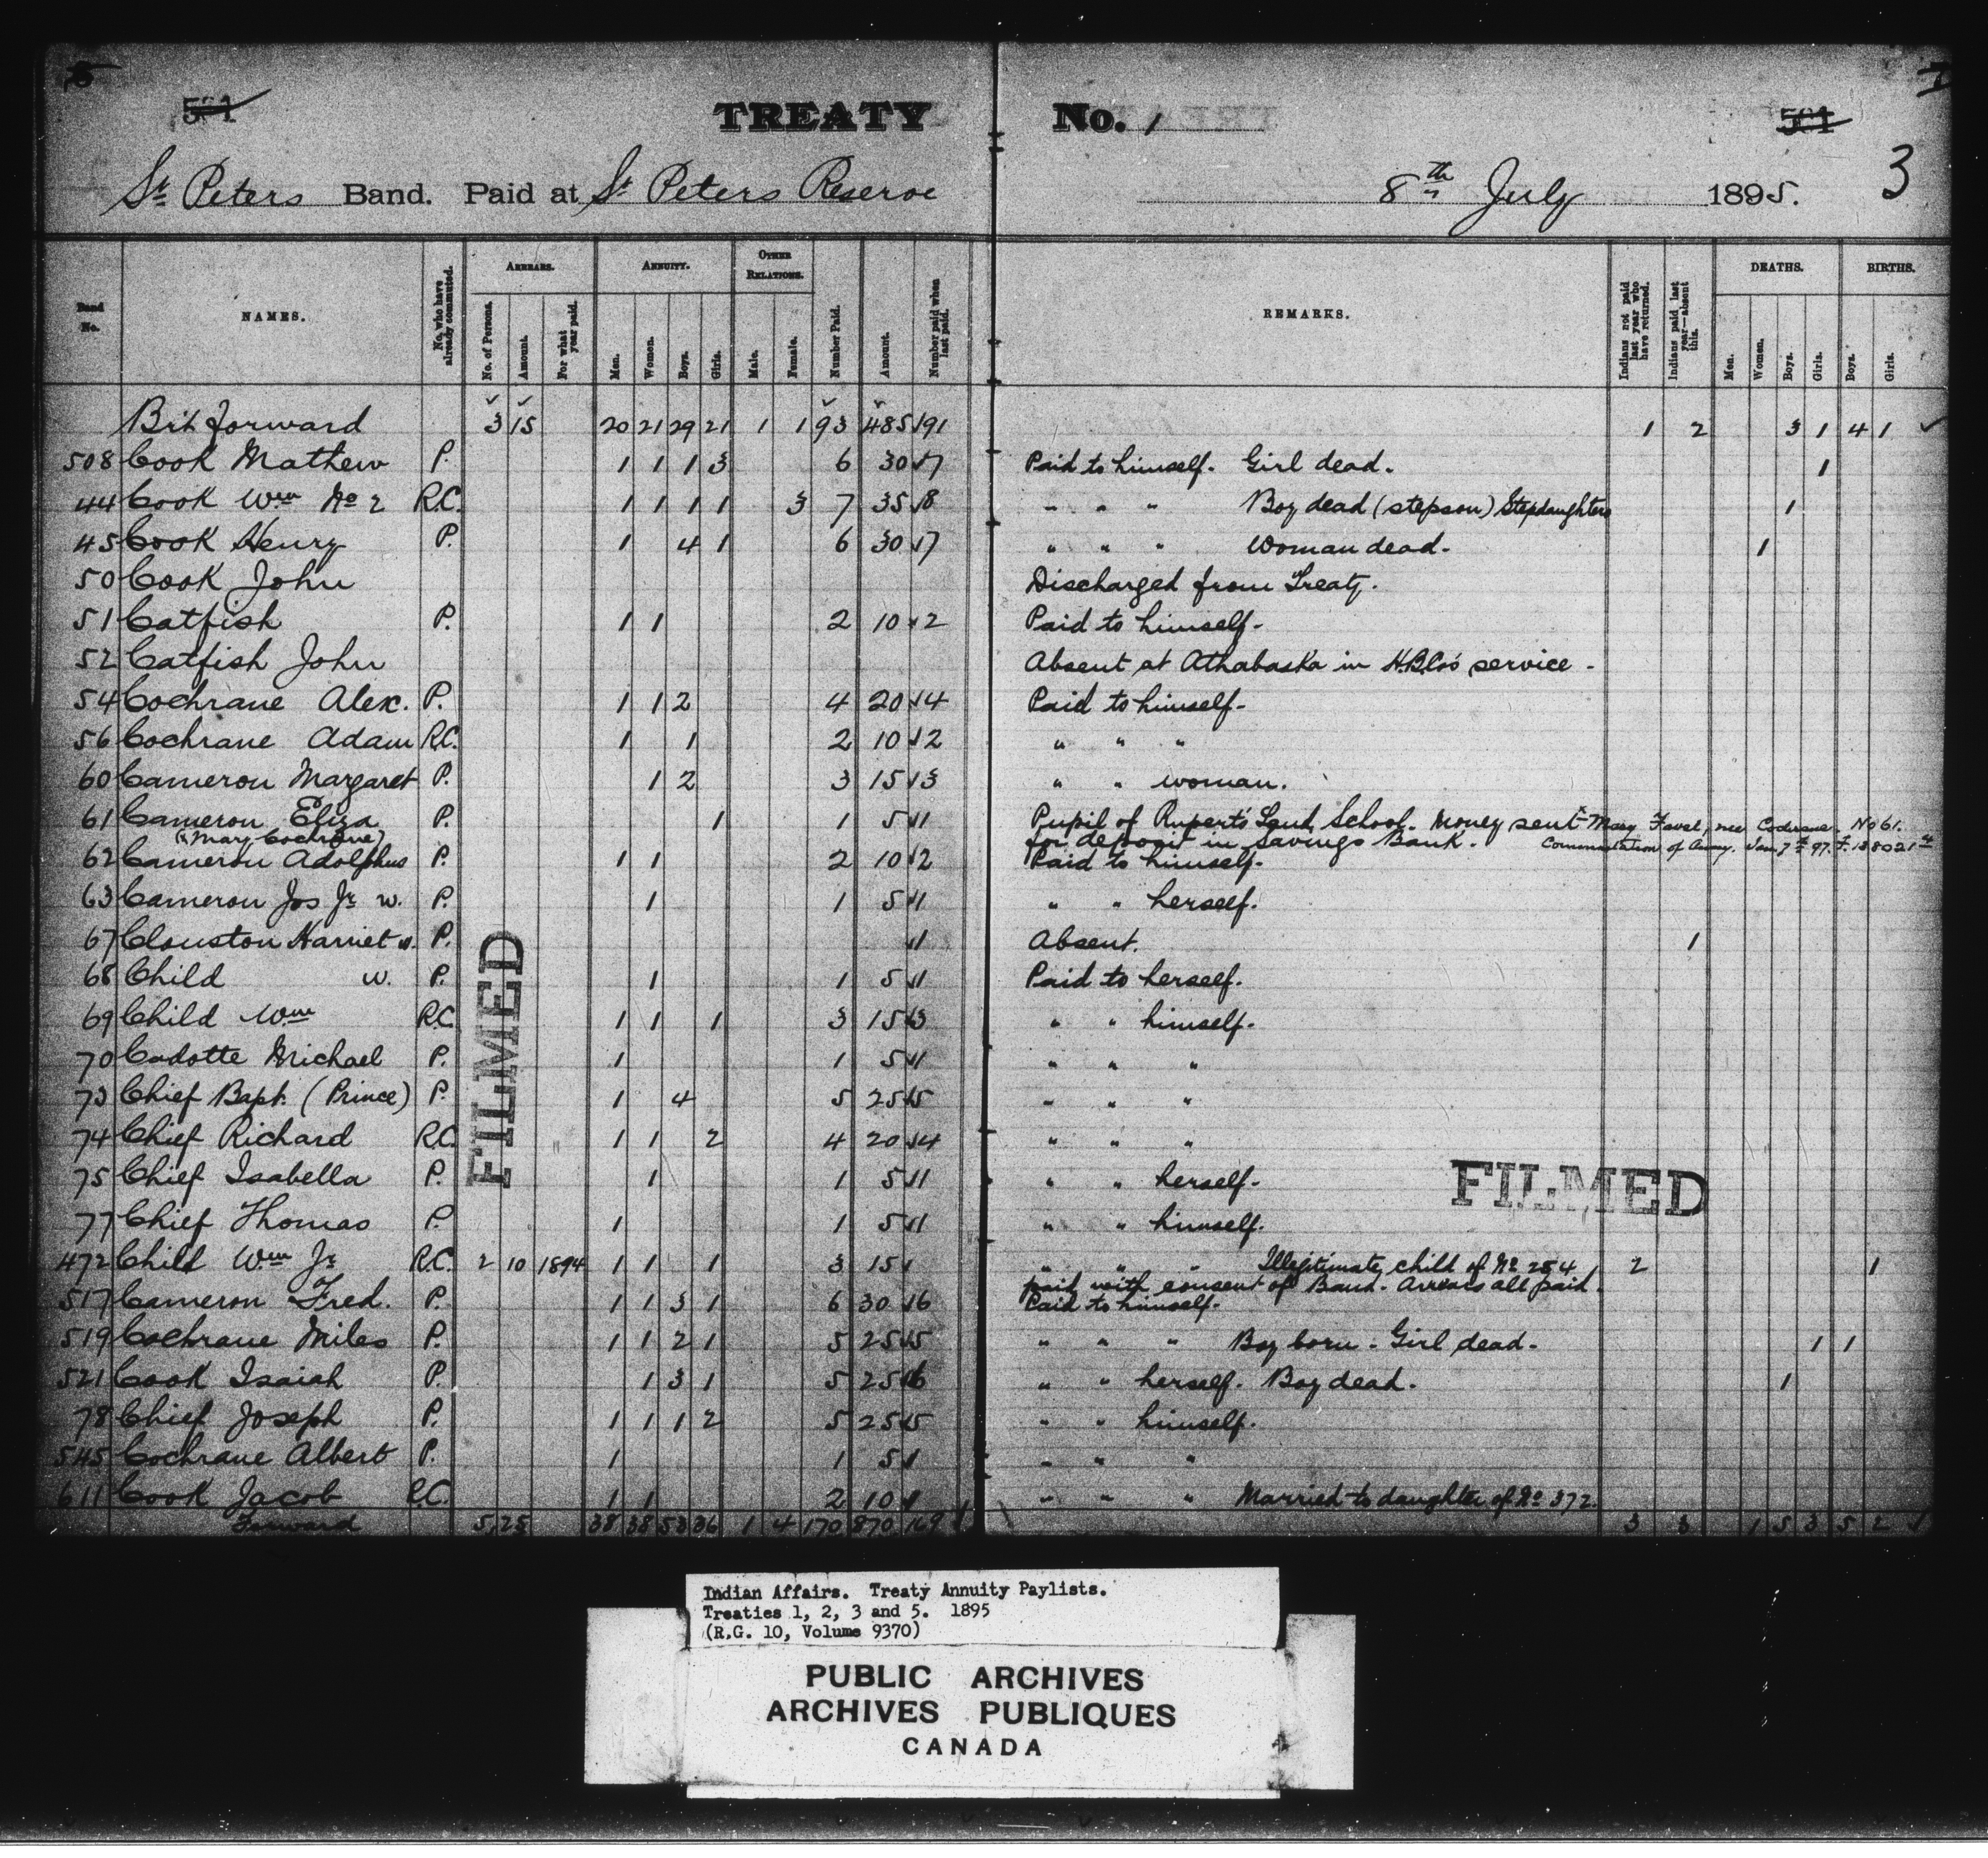 5
501
TREATY No. 1
501
I
3
St. Peters Band. Paid at St. Peters Reserve 8th July 1895.
Band No.
NAMES.
No. who have already commuted.
ARREARS.
No. of Persons.
Amount.
For what year paid.
ANNUITY.
Men.
Women.
Boys.
Girls.
OTHER RELATIONS.
Male.
Female.
Number Paid.
Amount.
Number paid when last paid.
REMARKS.
Indians not paid last year who have returned.
Indians paid last year—absent this.
DEATHS.
Men.
Women.
Boys.
Girls.
BIRTHS.
Boys.
Girls.
Bt. forward 3 15 20 21 29 21 1 1 93 485 ✓ 91 1 2 3 1 4 1 ✓
508 Cook Mathew P. 1 1 1 3 6 30 ✓ 7 Paid to himself. Girl dead. 1
44 Cook Wm No 2 R.C. 1 1 1 1 3 7 35 ✓ 8 " " " Boy dead (stepson) Stepdaughters 1
45 Cook Henry P. 1 4 1 6 30 ✓ 7 " " " Woman dead. 1
50 Cook John Discharged from Treaty.
51 Catfish P. 1 1 2 10 ✓ 2 Paid to himself.
52 Catfish John Absent at Athabaska in H.B.Co's service -
54 Cochrane Alex. P. 1 1 2 4 20 ✓ 4 Paid to himself.
56 Cochrane Adam R.C. 1 1 2 10 ✓ 2 " " "
60 Cameron Margaret P. 1 2 3 15 ✓ 3 " " woman.
61 Cameron Eliza P. 1 1 5 ✓ 1 Pupil of Rupert's Land School. Money sent x Mary Favel, nee Cochrane. No 61.
(x Mary Cochrane) for deposit in Savings Bank. Commutation of Anny. Jan. 7th 97.
62 Cameron Adolphus P. 1 1 2 10 ✓ 2 Paid to himself.
63 Cameron Jos Jr w. P. 1 1 5 ✓ 1 " " herself.
67 Clouston Harriet w. P. ✓ 1 Absent. 1
68 Child w. P. 1 1 5 ✓ 1 Paid to herself.
69 Child Wm R.C. 1 1 1 3 15 ✓ 3 " " himself.
70 Cadotte Michael P. 1 1 5 ✓ 1 " " "
73 Chief Bapt. (Prince) P. 1 4 5 25 ✓ 5 " " "
74 Chief Richard R.C. 1 1 2 4 20 ✓ 4 " " "
75 Chief Isabella P. 1 1 5 ✓ 1 " " herself.
77 Chief Thomas P. 1 1 5 ✓ 1 " " himself.
472 Child Wm Jr R.C. 2 10 1894 1 1 1 3 15 ✓ " " " Illegitimate child of No 254 2 1
paid with consent of Band. Arrears all paid.
517 Cameron Fred. P. 1 1 3 1 6 30 ✓ 6 Paid to himself.
519 Cochrane Miles P. 1 1 2 1 5 25 ✓ 5 " " " Boy born - Girl dead. 1 1
521 Cook Isaiah P. 1 3 1 5 25 ✓ 6 " " herself. Boy dead. 1
78 Chief Joseph P. 1 1 1 2 5 25 ✓ 5 " " himself.
545 Cochrane Albert P. 1 1 5 ✓ " " "
611 Cook Jacob R.C. 1 1 2 10 ✓ " " " Married to daughter of No 372.
Forward 5 25 38 38 53 36 1 4 170 870 169 3 3 1 5 3 5 2 ✓
FILMED
FILMED
Indian Affairs. Treaty Annuity Paylists.
Treaties 1, 2, 3 and 5. 1895
(R.G. 10, Volume 9370)
PUBLIC ARCHIVES
ARCHIVES PUBLIQUES
CANADA